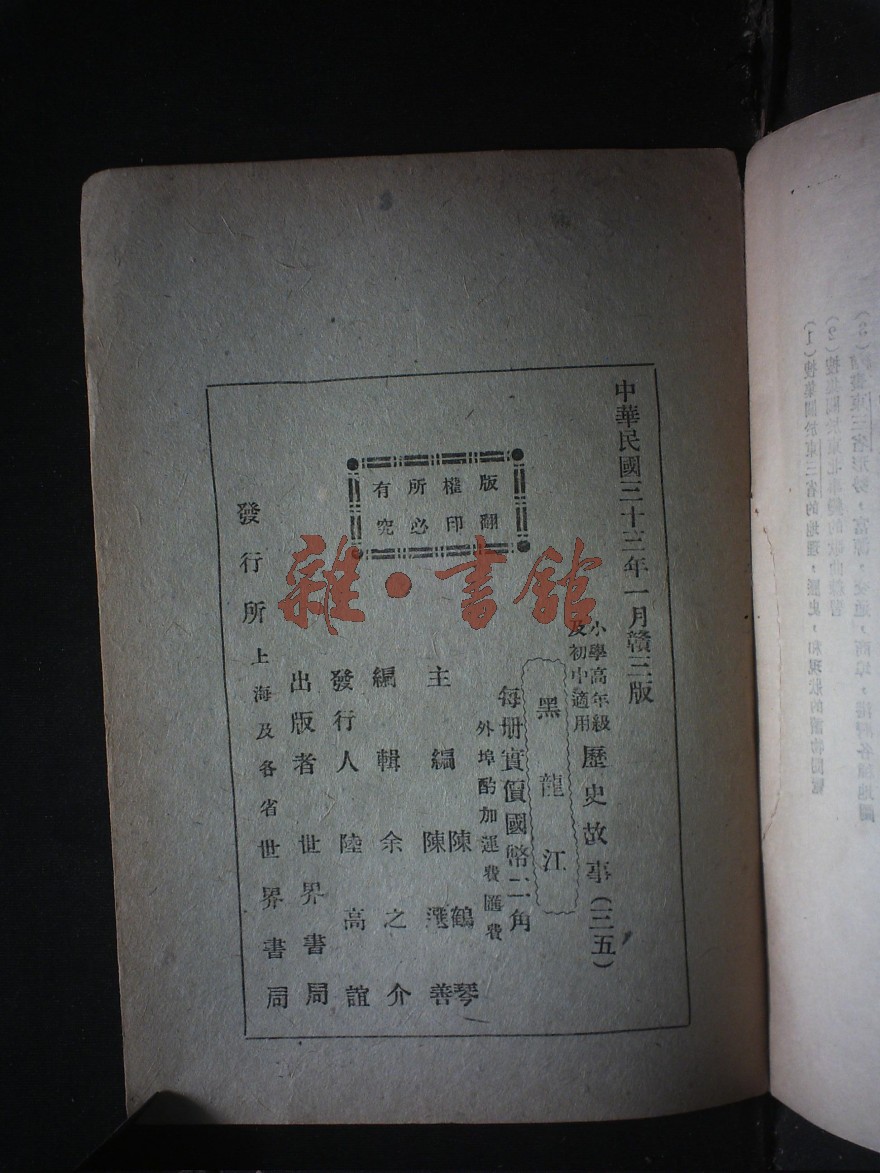 中華民國三十三年一月贛三版
小學高年級
及初中適用
歷史故事（三五）
黑龍江
每册實價國幣二角
外埠酌加運費匯費
主編 陳鶴琴
陳選善
編輯 余之介
發行人 陸高誼
出版者 世界書局
發行所 上海及各省世界書局
版權所有
翻印必究
雜·書館